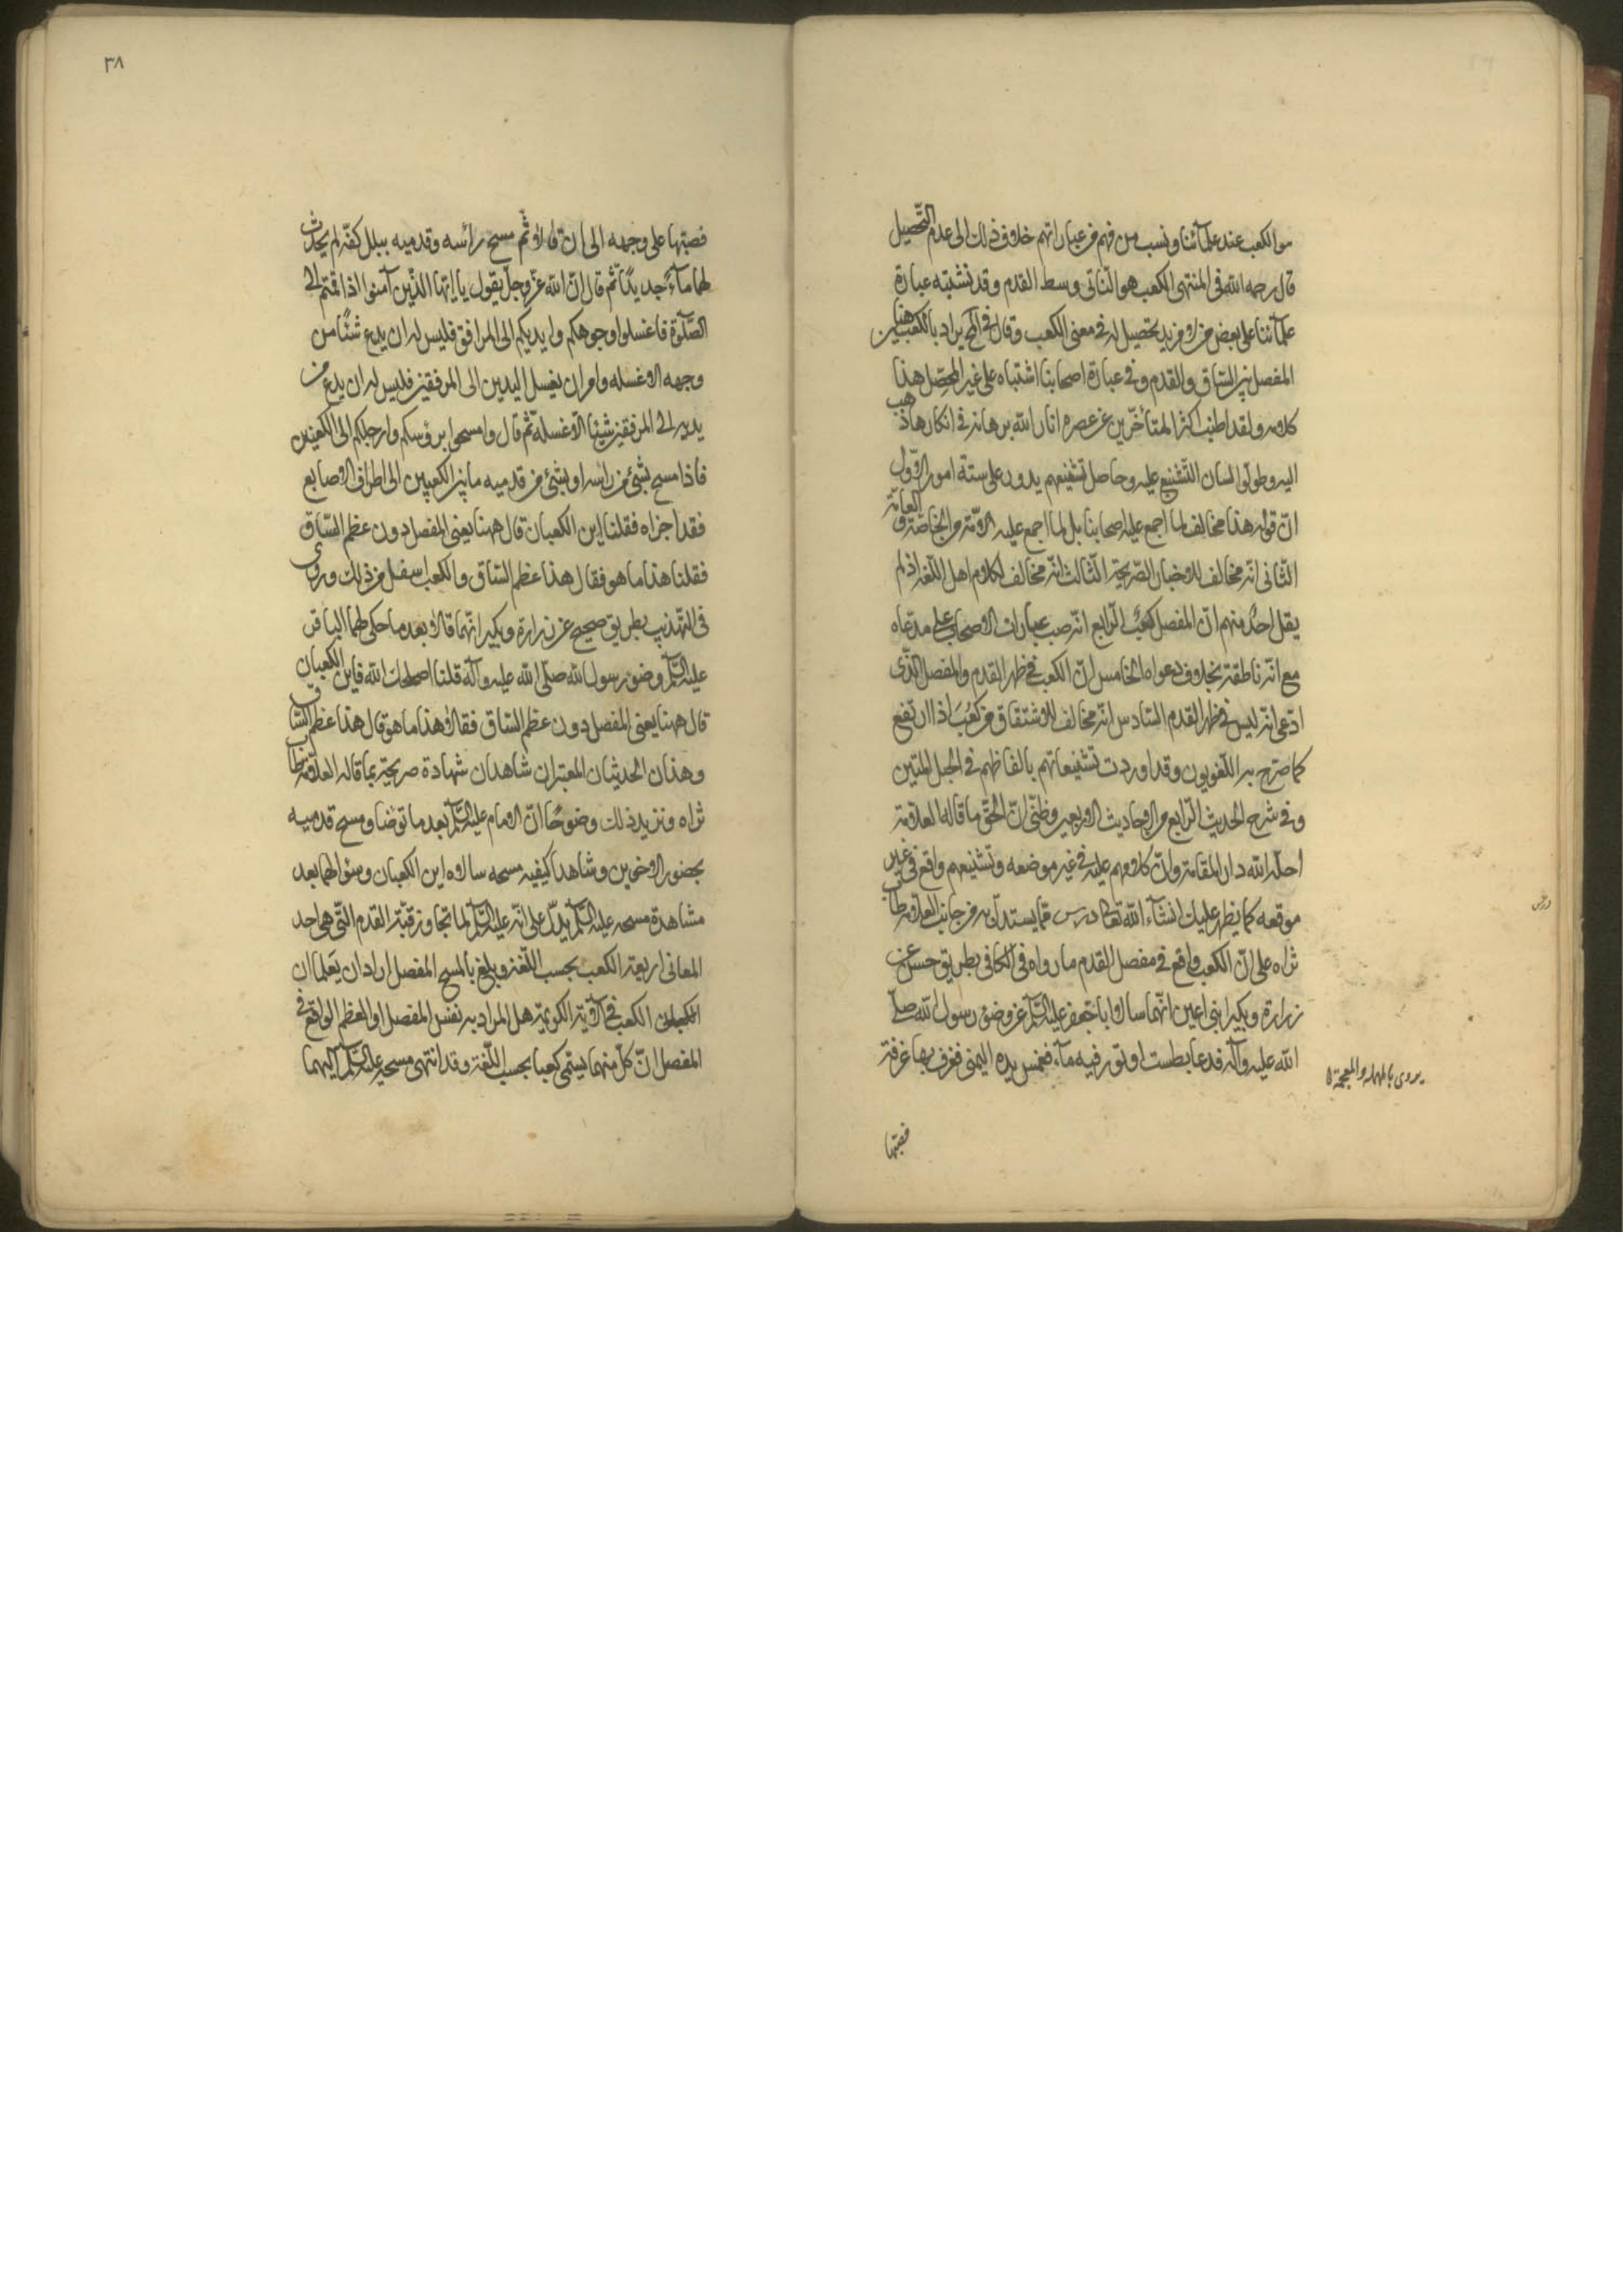 هو الكعب عند علمآئنا ونسب من فهم من عباراتهم خلاف ذلك الى عدم التّحصيل
قال رحمه الله في المنتهى الكعب هو النّاتي وسط القدم وقد تشتبه عبارة
علمآئنا على بعض من لا مزيد تحصيل له في معنى الكعب وقال في يراد بالكعبين هنا
المفصل بين السّاق والقدم وفي عبارة اصحابنا اشتباه على غير المحصّل هذا
كلامه ولقد اطنب اكثر المتأخّرين عن عصره انار الله برهانه في انكار ما ذهب
اليه وطولوا لسان التّشنيع عليه وحاصل تشنيعهم يدور على ستة امور الاوّل
انّ قوله هذا مخالف لما اجمع عليه اصحابنا بل لما اجمع عليه الامّة من الخاصّة والعامّة
الثّاني انّه مخالف للاخبار الصّريحة الثّالث انّه مخالف لكلام اهل اللّغة اذ لم
يقل احدٌ منهم انّ المفصل كعبٌ الرّابع انّه صب عبارات الاصحاب على مدّعاه
مع انّها ناطقة بخلاف دعواه الخامس انّ الكعب في ظهر القدم والمفصل الّذي
ادّعى انّه ليس في ظهر القدم السّادس انّه مخالف للاشتقاق من كَعُبَ اذا ارتفع
كما صرّح به اللّغويون وقد اوردت تشنيعاتهم بالفاظهم في الحبل المتين
وفي شرح الحديث الرّابع من الاحاديث الاربعين وظنّي انّ الحقّ ما قاله العلّامة
احلّه الله دار المقامة وانّ كلامهم عليه في غير موضعه وتشنيعهم واقع في غير
موقعه كما يظهر عليك انشآء الله تعالى درس ممّا يستدلّ به من جانب العلّامة طاب
ثراه على انّ الكعب واقع في مفصل القدم ما رواه في الكافي بطريق حسن عن
زرارة وبكير ابني اعين انّهما سالا ابا جعفر عليه السّلم عن وضوء رسول الله صلّى
الله عليه وآله فدعا بطست او تور فيه مآء فغمس يده اليمنى فغرف بها غرفة
يروى بالمهملة والمعجمة
درس
فصبّها
٣٨
فصبّها على وجهه الى ان قالا ثمّ مسح رأسه وقدميه ببلل كفّه لم يحدث
لهما مآءً جديدًا ثمّ قال انّ الله عزّ وجلّ يقول يا ايّها الّذين آمنوا اذا قمتم الى
الصّلوة فاغسلوا وجوهكم وايديكم الى المرافق فليس له ان يدع شئًا من
وجهه الا غسله وامر ان يغسل اليدين الى المرفقين فليس له ان يدع من
يديه الى المرفقين شيئا الّا غسله ثمّ قال وامسحوا برؤسكم وارجلكم الى الكعبين
فاذا مسح بشئ من راسه او بشئ من قدميه ما بين الكعبين الى اطراف الاصابع
فقد اجزاه فقلنا اين الكعبان قال ههنا يعني المفصل دون عظم السّاق
فقلنا هذا ما هو فقال هذا عظم السّاق والكعب اسفل من ذلك وروى
في التّهذيب بطريق صحيح عن زرارة وبكير انّهما قالا بعد ما حكى لهما الباقر
عليه السّلم وضوء رسول الله صلّى الله عليه وآله قلنا اصلحك الله فاين الكعبان
قال ههنا يعني المفصل دون عظم السّاق فقالا هذا ما هو قال هذا عظم السّاق
وهذان الحديثان المعتبران شاهدان شهادة صريحة بما قاله العلّامة طاب
ثراه ونزيد ذلك وضوحًا انّ الامام عليه السّلم بعد ما توضا ومسح قدميه
بحضور الاخوين وشاهدا كيفيه مسحه سالاه اين الكعبان وسؤالهما بعد
مشاهدة مسحه عليه السّلم يدلّ على انّه عليه السّلم لما تجاوز قبّة القدم الّتي هي احد
المعاني اربعة الكعب بحسب اللّغة وبلغ بالمسح المفصل ارادا ان يعلما ان
الكعب في الآية الكريمة هل المراد به نفس المفصل او العظم الواقع في
المفصل انّ كلّ منهما يسمّى كعبا بحسب اللّغة وقد انتهى مسحه عليه السّلم اليهما